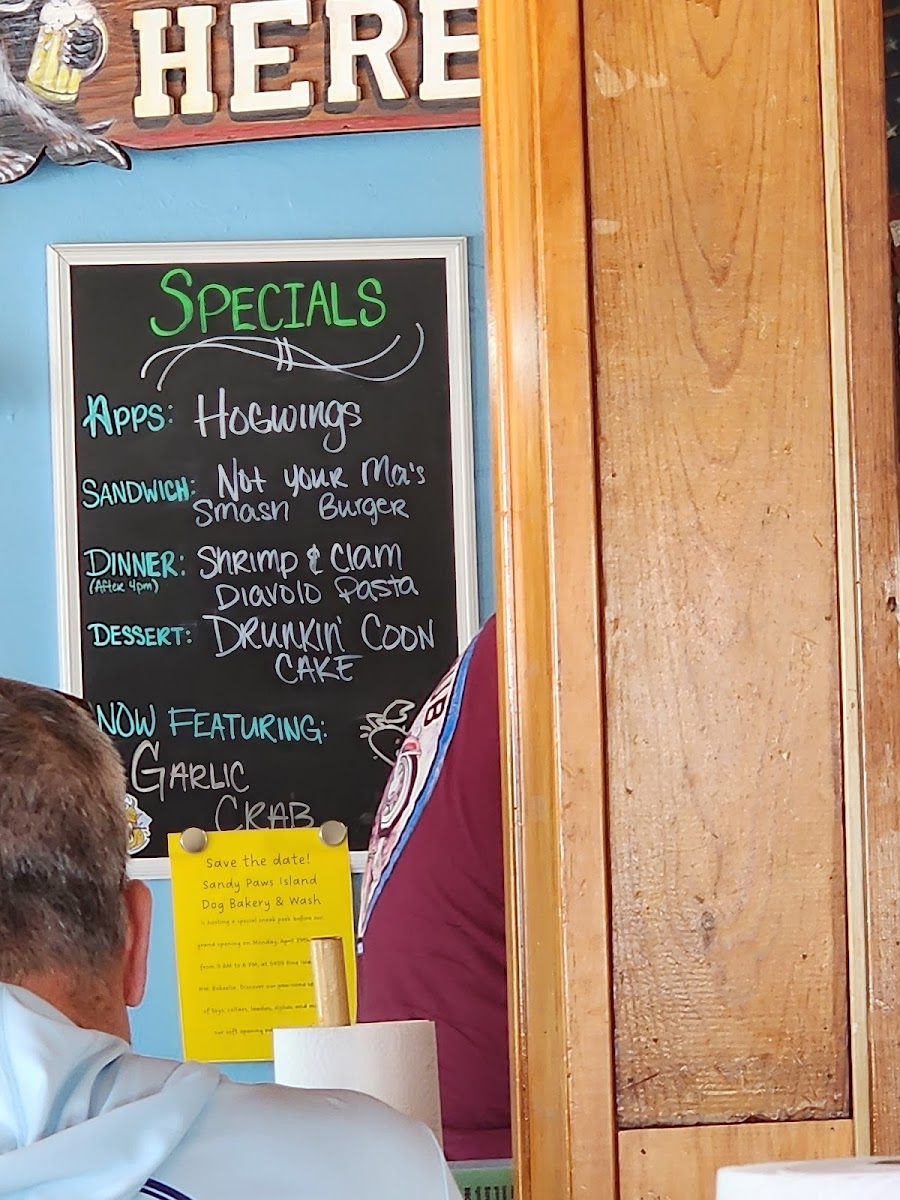 HERE
SPECIALS
APPS: HOGWINGS
SANDWICH: Not your Ma's
Smash Burger
DINNER: Shrimp & Clam
(After 4pm) Diavolo Pasta
DESSERT: DRUNKIN' COON
CAKE
NOW FEATURING:
GARLIC
CRAB
Save the date!
Sandy Paws Island
Dog Bakery & Wash
is hosting a special sneak peek before our
grand opening on Monday, April
from 9 AM to 6 PM, at 5409 Pine
NW, Bokeelia. Discover our pawsome
of toys, collars, leashes, dishes, and
our soft opening